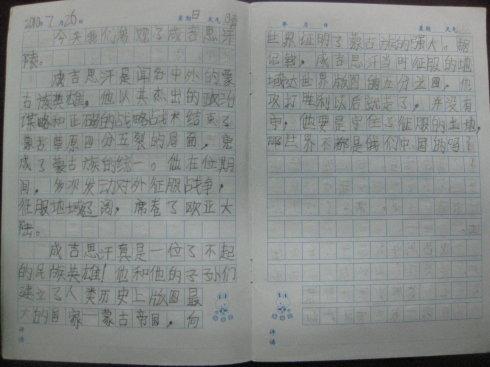 2010.7月26日 星期日 天气 晴
今天我们离开了成吉思汗
陵。
成吉思汗是闻名中外的蒙
古族英雄。他以其杰出的政治
谋略和正确的战略战术结束了
蒙古草原四分五裂的局面，完
成了蒙古族的统一。他在位期
间，多次发动对外征服战争，
征服地域辽阔，席卷了欧亚大
陆。
成吉思汗真是一位了不起
的民族英雄！他和他的子孙们
建立了人类历史上版图最
大的国家—蒙古帝国，向
评语
年 月 日 星期 天气
世界证明了蒙古族的强大。据
记载，成吉思汗当时征服的地
域达世界版图的五分之四，他
攻打胜利以后就走了，并没有
守，他要是守住了征服的土地，
那世界不都是我们中国的吗！
评语